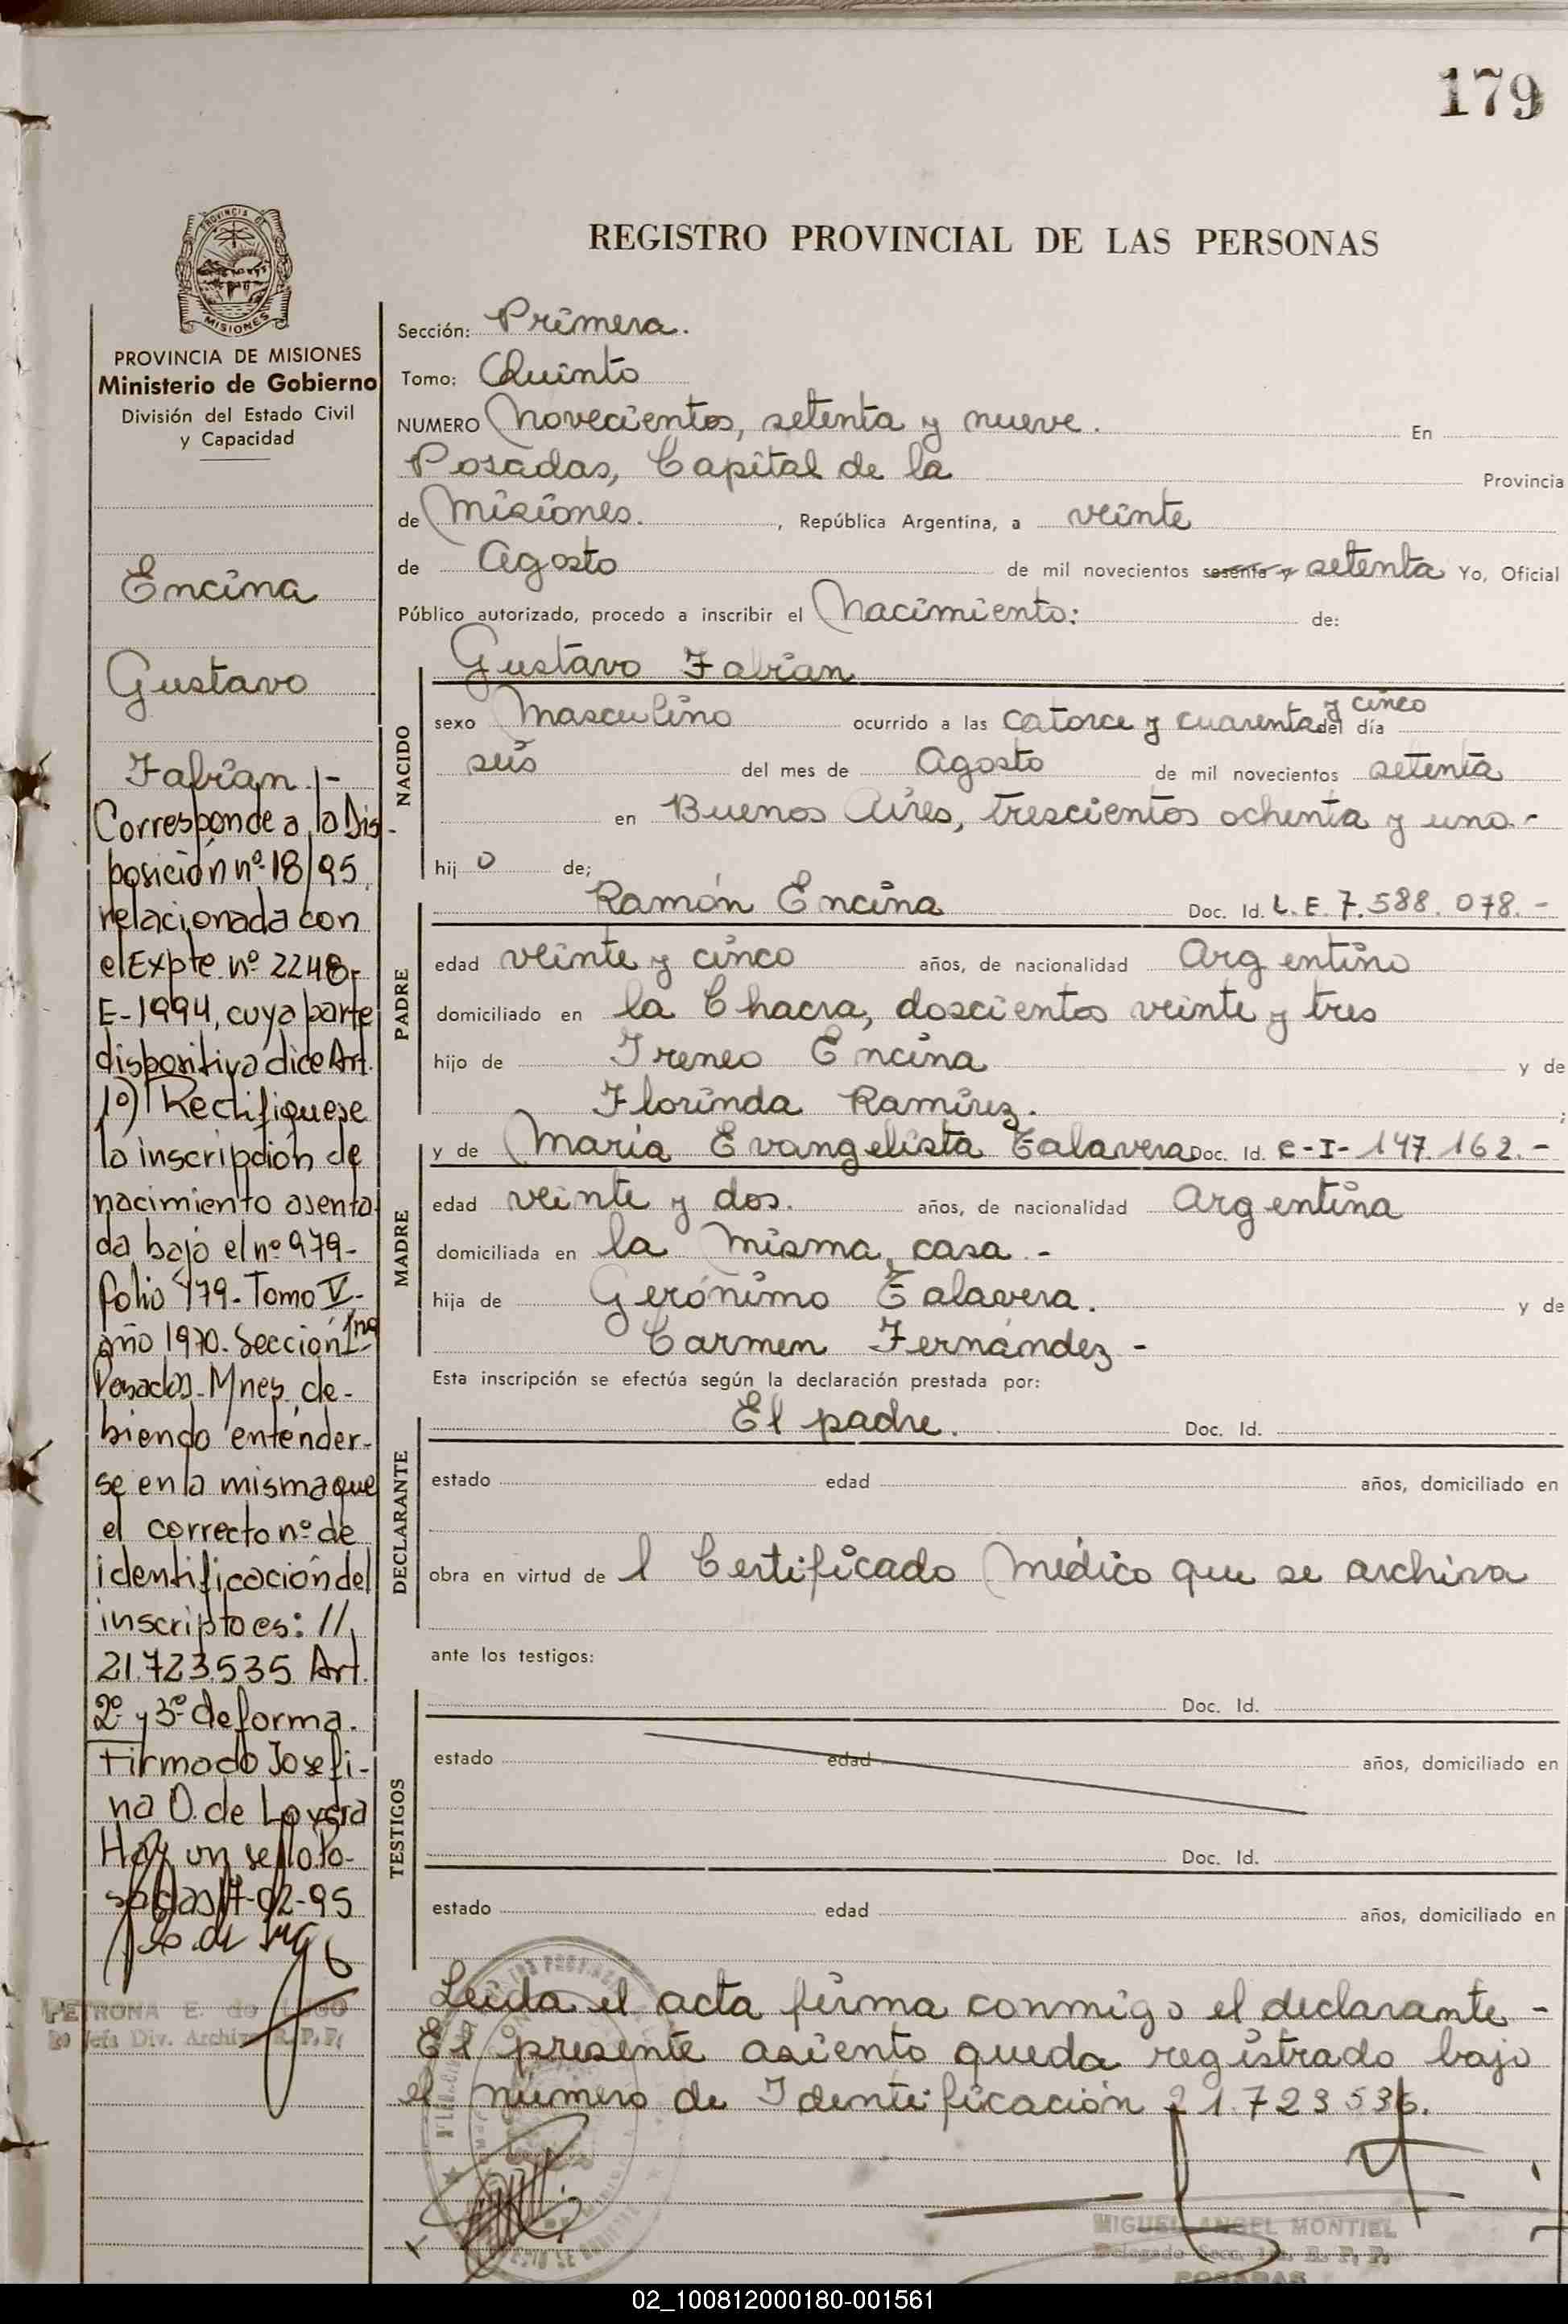 179
REGISTRO PROVINCIAL DE LAS PERSONAS
PROVINCIA DE MISIONES
Ministerio de Gobierno
División del Estado Civil
y Capacidad
Encina
Gustavo
Fabian.-
Corresponde a la Dis-
posición nº 18/95
relacionada con
el Expte nº 2248-
E-1994, cuya parte
dispositiva dice Art.
1º) Rectifiquese
la inscripción de
nacimiento asenta
da bajo el nº 979-
folio 179- Tomo V-
año 1970. Sección 1ra
Posadas-Mnes, de-
biendo entender-
se en la misma que
el correcto nº de
identificación del
inscripto es: //
21.723.535 Art.
2º y 3º de forma.
Firmado Josefi-
na O. de Lovera
Hay un sello Po-
sadas 17-02-95
PETRONA E. de LUGO
Jefa Div. Archivo R. P. P.
Sección: Primera.
Tomo: Quinto
NUMERO Novecientos, setenta y nueve. En
Posadas, Capital de la Provincia
de Misiones. , República Argentina, a veinte
de Agosto de mil novecientos sesenta y setenta Yo, Oficial
Público autorizado, procedo a inscribir el Nacimiento: de:
NACIDO
Gustavo Fabian
sexo Masculino ocurrido a las catorce y cuarenta y cinco del día
seis del mes de Agosto de mil novecientos setenta
en Buenos Aires, trescientos ochenta y uno.-
hij o de;
PADRE
Ramón Encina Doc. Id. L.E. 7.588.078.-
edad veinte y cinco años, de nacionalidad Argentino
domiciliado en la Chacra, doscientos veinte y tres
hijo de Ireneo Encina y de
Florinda Ramírez. ;
MADRE
y de María Evangelista Talavera Doc. Id. C-I-147.162.-
edad veinte y dos. años, de nacionalidad Argentina
domiciliada en la misma casa.-
hija de Gerónimo Talavera. y de
Carmen Fernández-
Esta inscripción se efectúa según la declaración prestada por:
DECLARANTE
El padre. Doc. Id.
estado edad años, domiciliado en
obra en virtud de l Certificado Médico que se archiva
ante los testigos:
TESTIGOS
Doc. Id.
estado edad años, domiciliado en
Doc. Id.
estado edad años, domiciliado en
Leída el acta firma conmigo el declarante-
El presente asiento queda registrado bajo
el número de Identificación 21.723.536.
MIGUEL ANGEL MONTIEL
Delegado Secc. 1a. R. P. P.
POSADAS
02_100812000180-001561